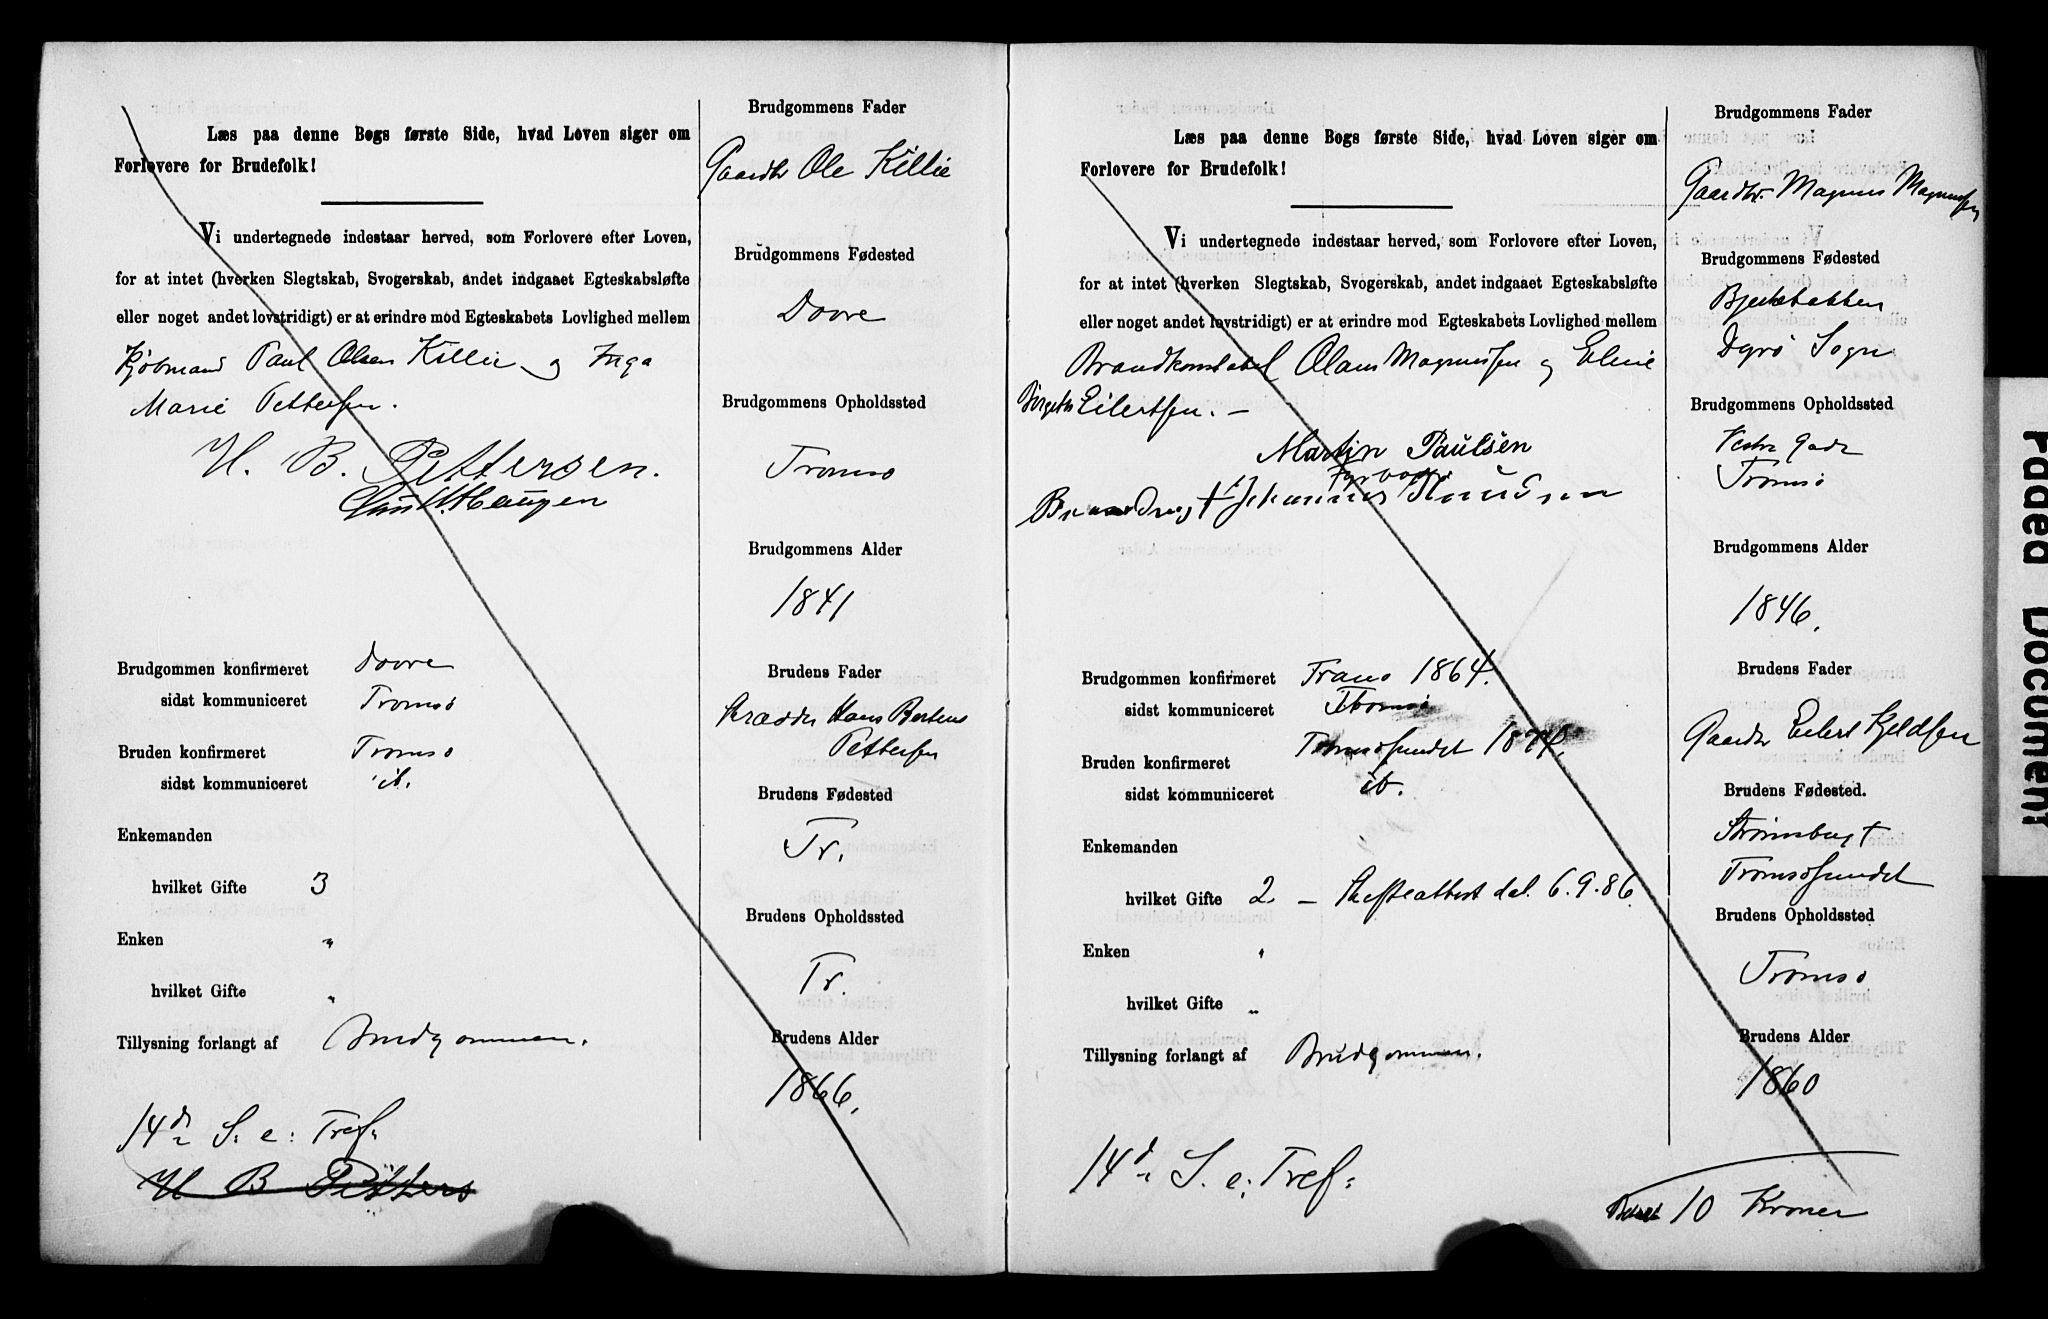 Læs paa denne Bogs første Side, hvad Loven siger om
Forlovere for Brudefolk!
Vi undertegnede indestaar herved, som Forlovere efter Loven,
for at intet (hverken Slegtskab, Svogerskab, andet indgaaet Egteskabsløfte
eller noget andet lovstridigt) er at erindre mod Egteskabets Lovlighed mellem
Kjøbmand Paul Olsen Killie og Inga
Marie Pettersen.
H. B. Pettersen.
Haugen
Brudgommen konfirmeret Dovre
sidst kommuniceret Tromsø
Bruden konfirmeret Tromsø
sidst kommuniceret ib.
Enkemanden
hvilket Gifte 3
Enken "
hvilket Gifte "
Tillysning forlangt af Brudgommen.
14d: S. e: Tref:
H B Petters
Brudgommens Fader
Gaardbr Ole Killie
Brudgommens Fødested
Dovre
Brudgommens Opholdssted
Tromsø
Brudgommens Alder
1841
Brudens Fader
Skrædder Hans Berteus
Pettersen
Brudens Fødested
Tr.
Brudens Opholdssted
Tr.
Brudens Alder
1866.
Læs paa denne Bogs første Side, hvad Loven siger om
Forlovere for Brudefolk!
Vi undertegnede indestaar herved, som Forlovere efter Loven,
for at intet (hverken Slegtskab, Svogerskab, andet indgaaet Egteskabsløfte
eller noget andet lovstridigt) er at erindre mod Egteskabets Lovlighed mellem
Brandkonstabel Olaus Magnussen og Eline
Eilertsen. –
Martin Paulsen
Johannes Knudsen
Brudgommen konfirmeret Tranø 1864.
sidst kommuniceret Tromsø
Bruden konfirmeret Tromsøsundet 1874.
sidst kommuniceret ib.
Enkemanden
hvilket Gifte 2 – Skifteattest dat. 6.9.86.
Enken "
hvilket Gifte "
Tillysning forlangt af Brudgommen.
14d: S. e: Tref:
Betalt 10 Kroner
Brudgommens Fader
Gaardbr. Magnus Magnussen
Brudgommens Fødested
Dyrø Sogn
Brudgommens Opholdssted
Vestre Gade
Tromsø
Brudgommens Alder
1846.
Brudens Fader
Gaardbr Eilert Kjeldsen
Brudens Fødested.
Strømsbugt
Tromsøsundet
Brudens Opholdssted
Tromsø
Brudens Alder
1860
Faded Document